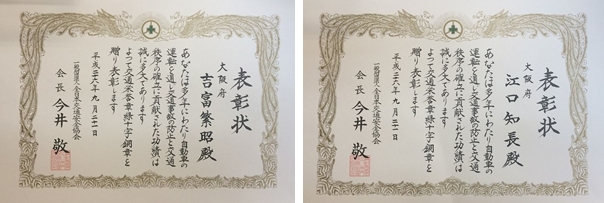 表彰状
大阪府
吉富繁昭殿
あなたは多年にわたり自動車の
運転を通し交通事故の防止と交通
秩序の確立に貢献された功績は
誠に多大であります
よつて交通栄誉章緑十字銅章を
贈り表彰します
平成二六年九月二十一日
一般財団法人全日本交通安全協会
会長 今井 敬
表彰状
大阪府
江口知長殿
あなたは多年にわたり自動車の
運転を通し交通事故の防止と交通
秩序の確立に貢献された功績は
誠に多大であります
よつて交通栄誉章緑十字銅章を
贈り表彰します
平成二六年九月二十一日
一般財団法人全日本交通安全協会
会長 今井 敬